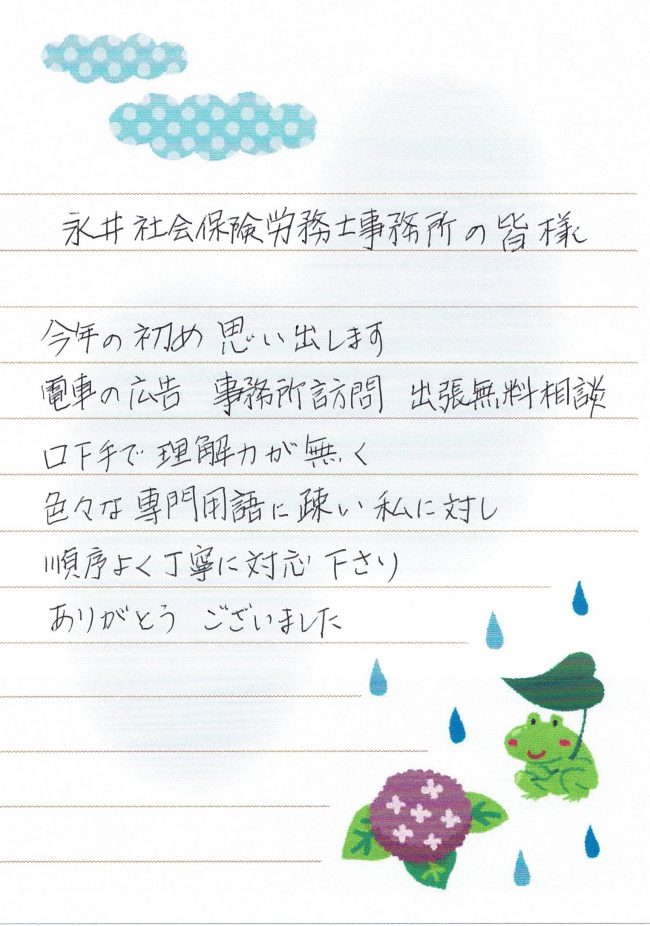 永井社会保険労務士事務所の皆様
今年の初め 思い出します
電車の広告 事務所訪問 出張無料相談
口下手で理解力が無く
色々な専門用語に疎い私に対し
順序よく丁寧に対応下さり
ありがとう ございました